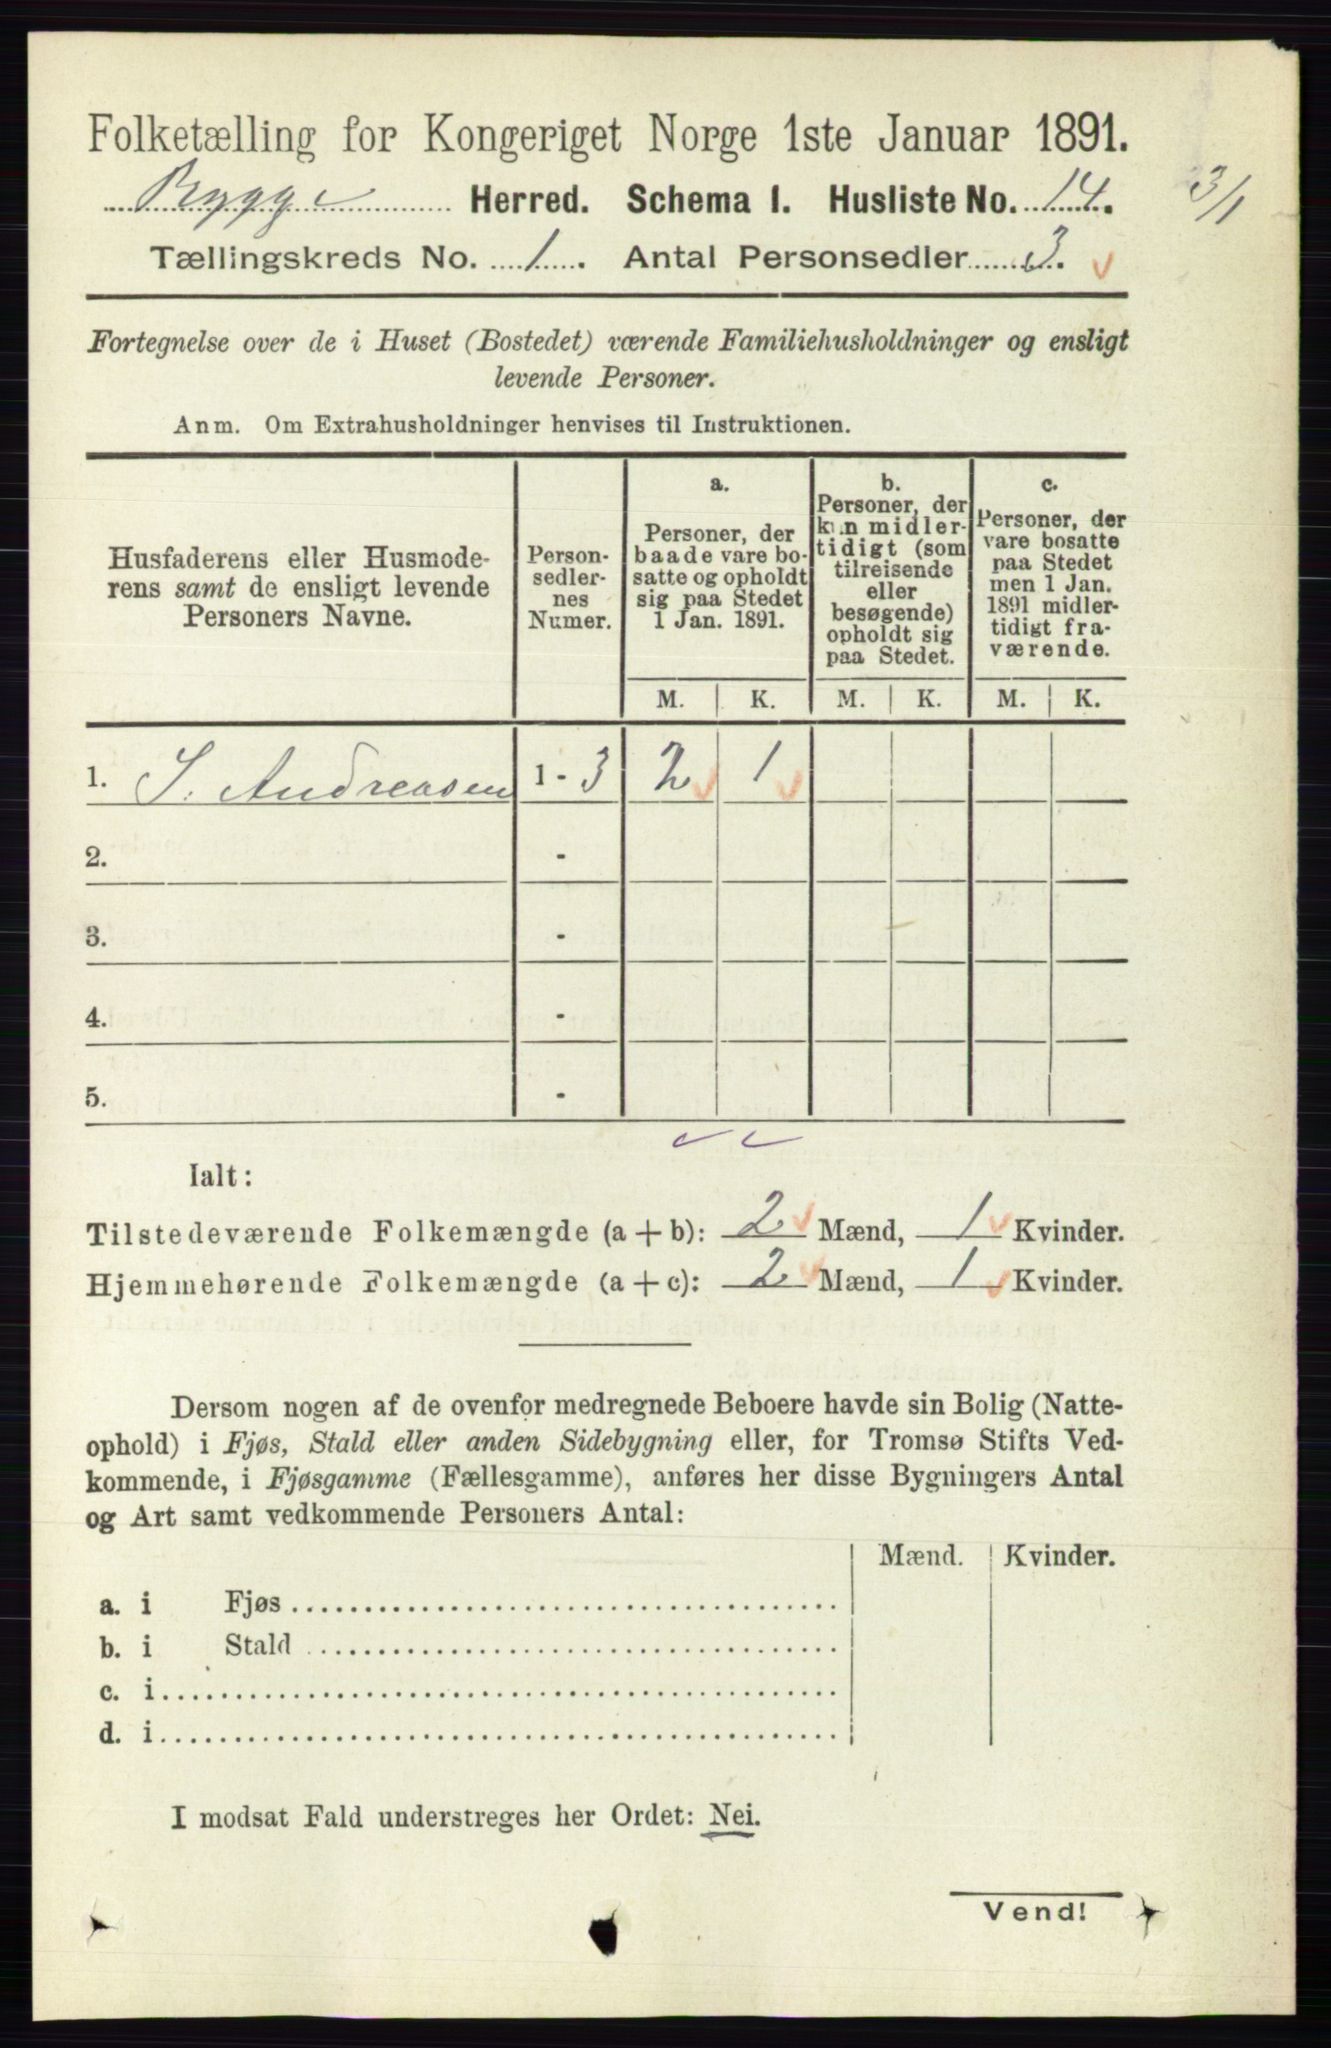 Folketælling for Kongeriget Norge 1ste Januar 1891.
Rygge Herred. Schema 1. Husliste No. 14.
3/1
Tællingskreds No. 1. Antal Personsedler 3.
Fortegnelse over de i Huset (Bostedet) værende Familiehusholdninger og ensligt
levende Personer.
Anm. Om Extrahusholdninger henvises til Instruktionen.
Husfaderens eller Husmode-
rens samt de ensligt levende
Personers Navne.
Person-
sedler-
nes
Numer.
a.
Personer, der
baade vare bo-
satte og opholdt
sig paa Stedet
1 Jan. 1891.
b.
Personer, der
kun midler-
tidigt (som
tilreisende
eller
besøgende)
opholdt sig
paa Stedet.
c.
Personer, der
vare bosatte
paa Stedet
men 1 Jan.
1891 midler-
tidigt fra-
værende.
M. K. M. K. M. K.
1. S. Andreasen 1 - 3 2 1
2. -
3. -
4. -
5. -
Ialt:
Tilstedeværende Folkemængde (a + b): 2 Mænd, 1 Kvinder.
Hjemmehørende Folkemængde (a + c): 2 Mænd, 1 Kvinder.
Dersom nogen af de ovenfor medregnede Beboere havde sin Bolig (Natte-
ophold) i Fjøs, Stald eller anden Sidebygning eller, for Tromsø Stifts Ved-
kommende, i Fjøsgamme (Fællesgamme), anføres her disse Bygningers Antal
og Art samt vedkommende Personers Antal:
Mænd. Kvinder.
a. i Fjøs
b. i Stald
c. i
d. i
I modsat Fald understreges her Ordet: Nei.
Vend!